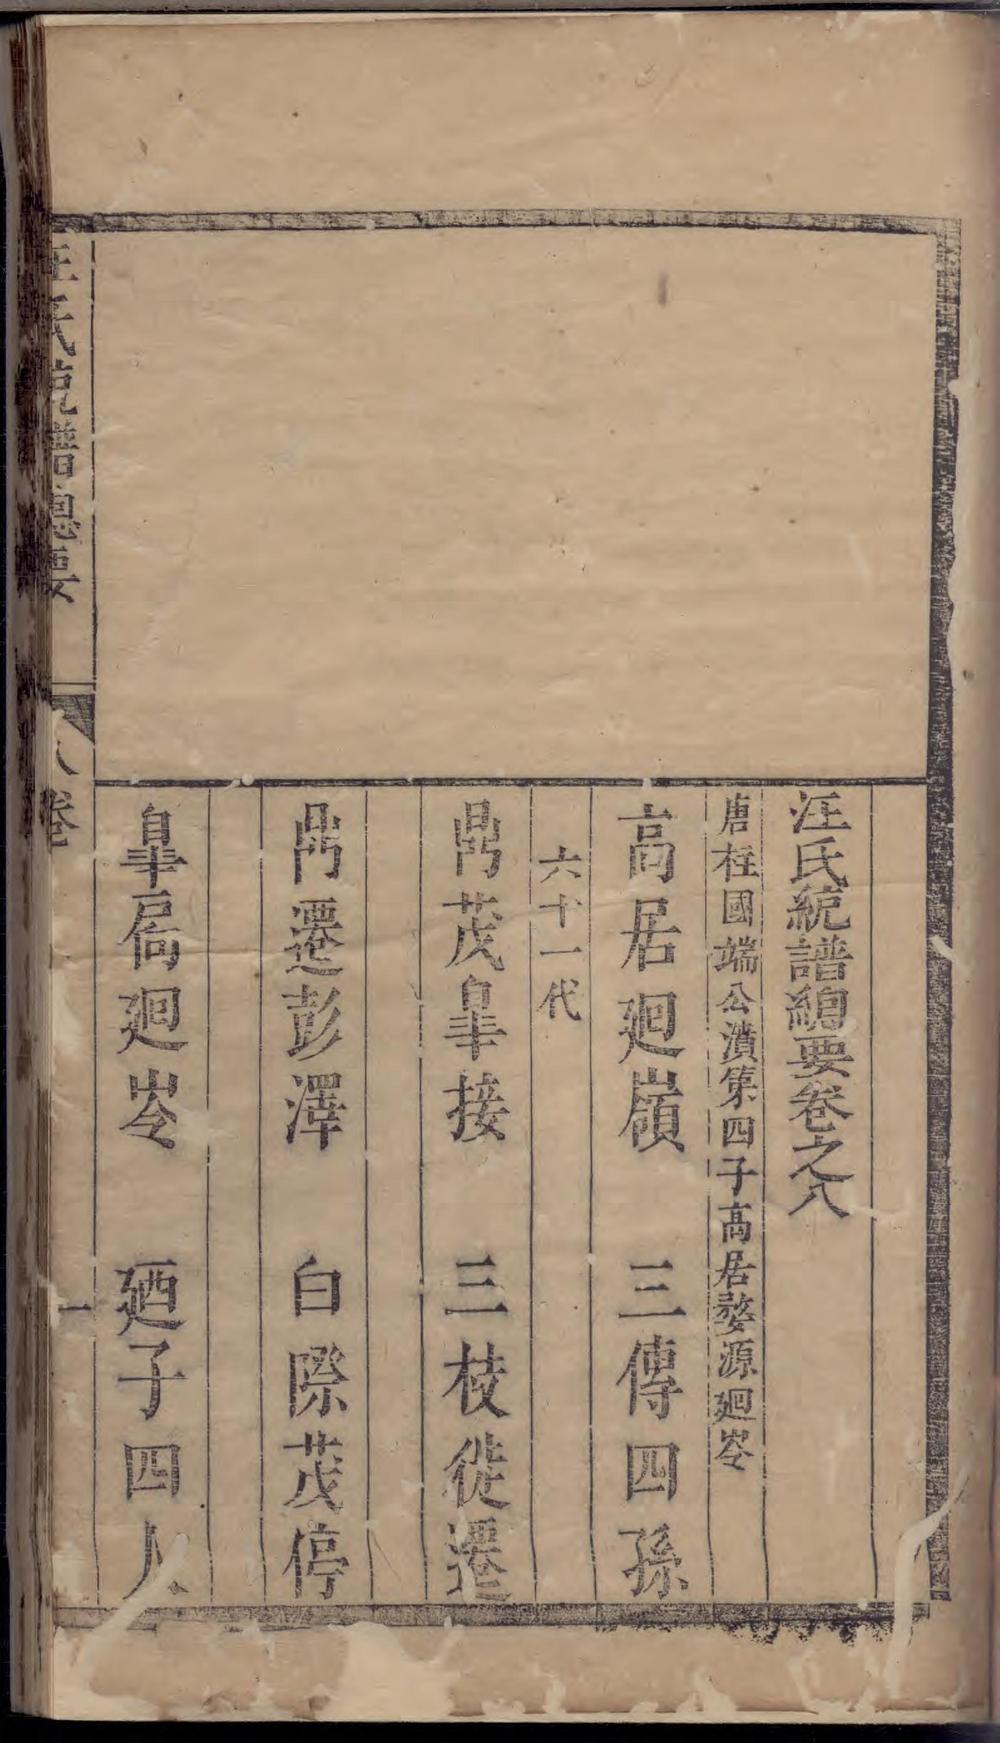 汪氏統譜總要卷之八
唐柱國端公濆第四子高居婺源廻岺
高居廻嶺　三傳四孫
六十一代
鼎茂皐接　三枝徙遷
鼎遷彭澤　白際茂停
皐居廻岺　廼子四人
汪氏統譜總要　八卷　一